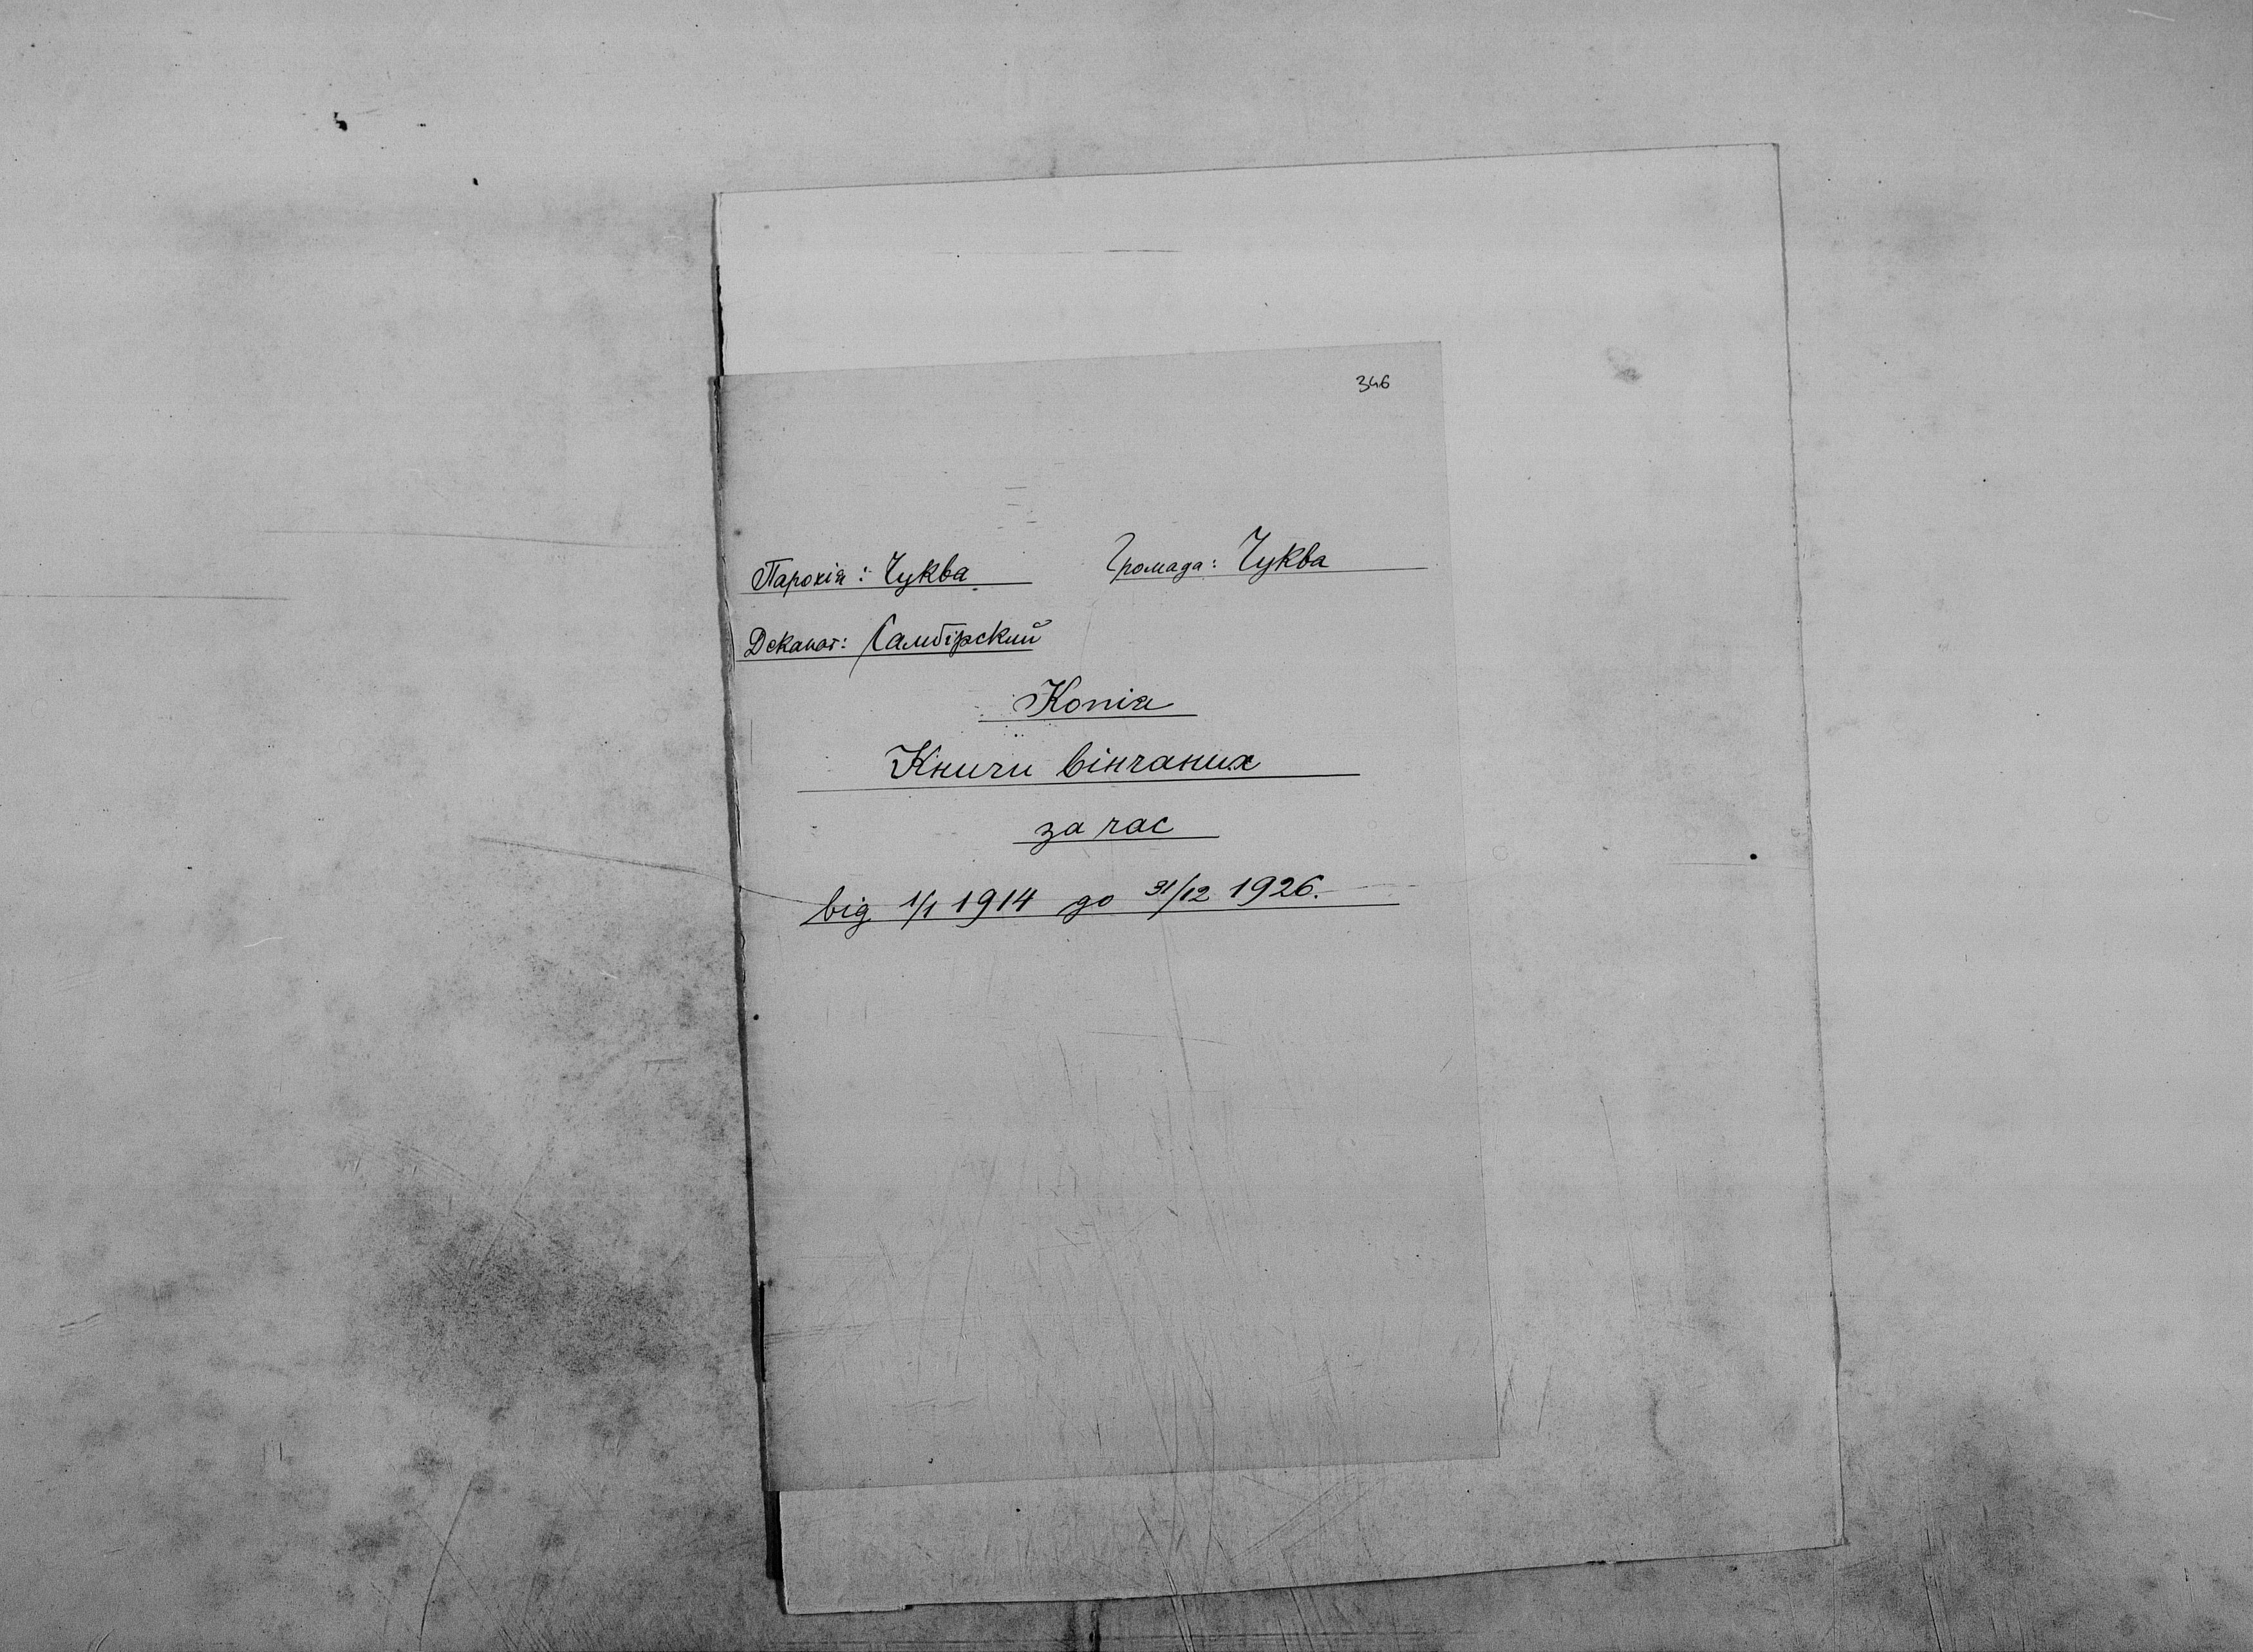 346
Парохія: Чуква Громада: Чуква
Деканат: Самбірский
Копія
Книги вінчаних
за час
від 1/1 1914 до 31/12 1926.